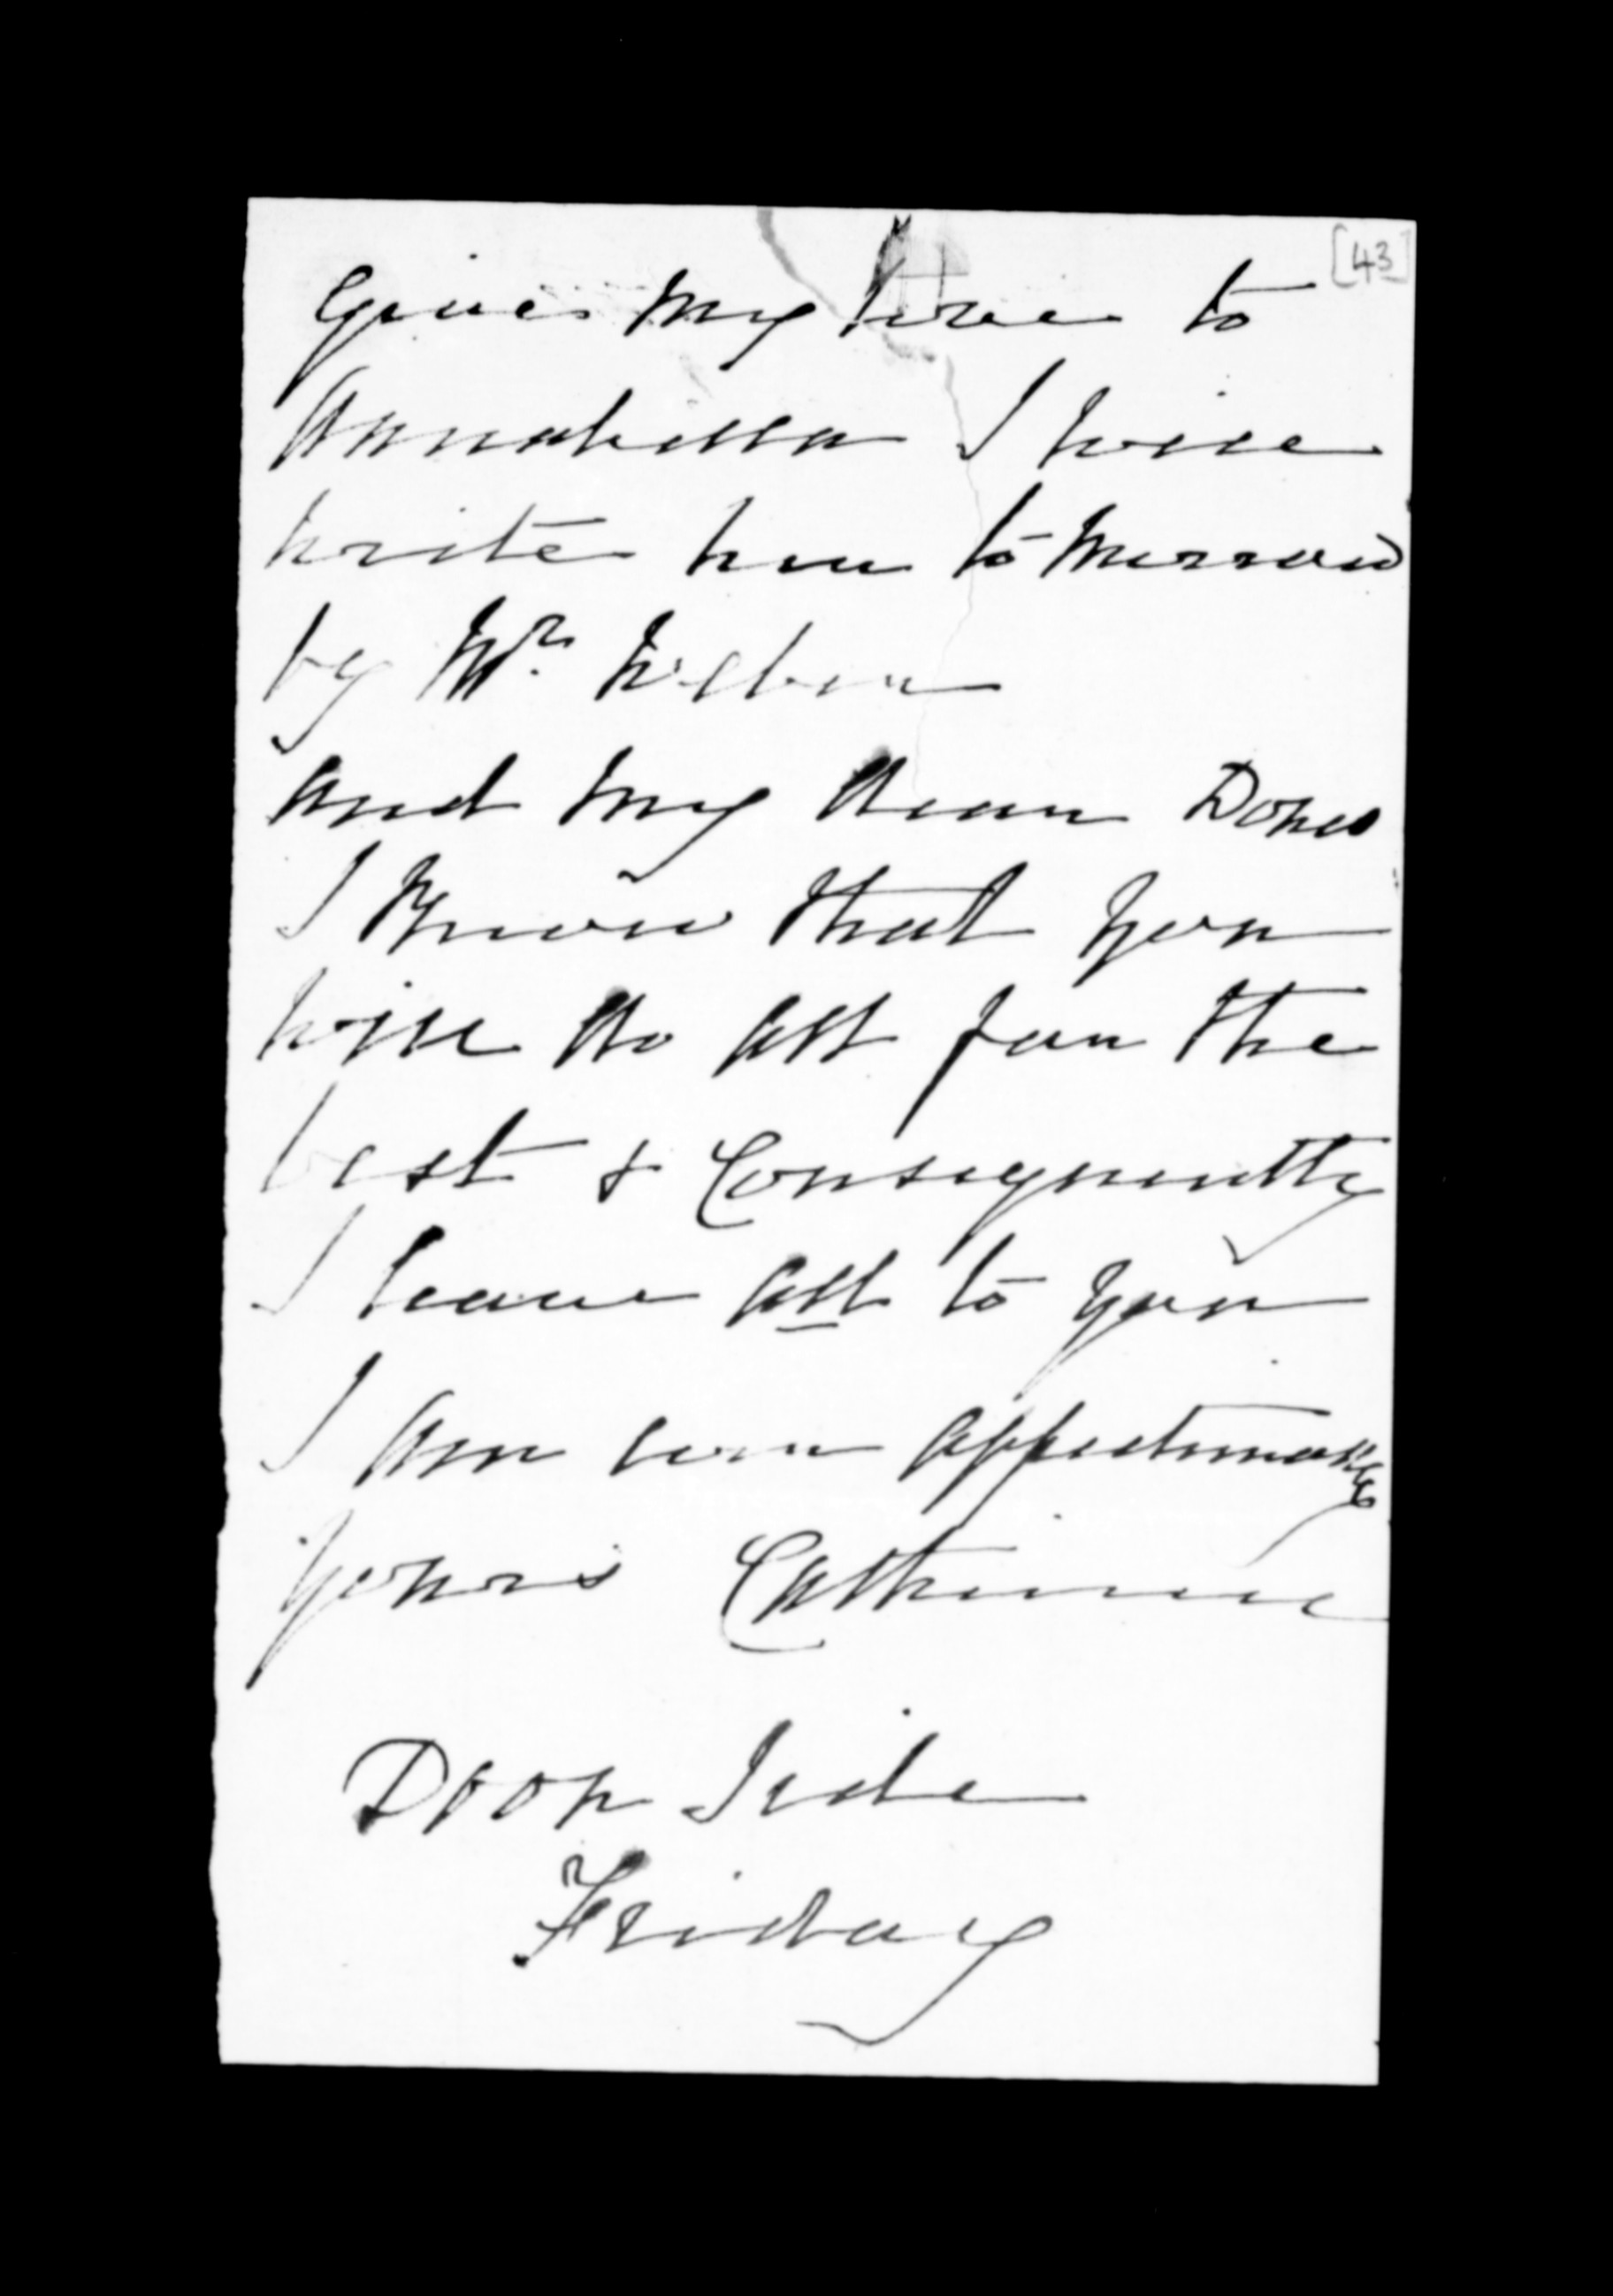 [43]
Give my love to
Annabella I will
write her to morrow
by Mr.
and my dear
I know that you
will do all for the
best & Consequently
I leave all to you
I am ever affectionately
yours Catherine
Side
Friday